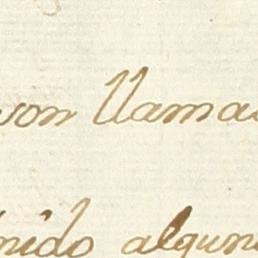 von llama
nido algun